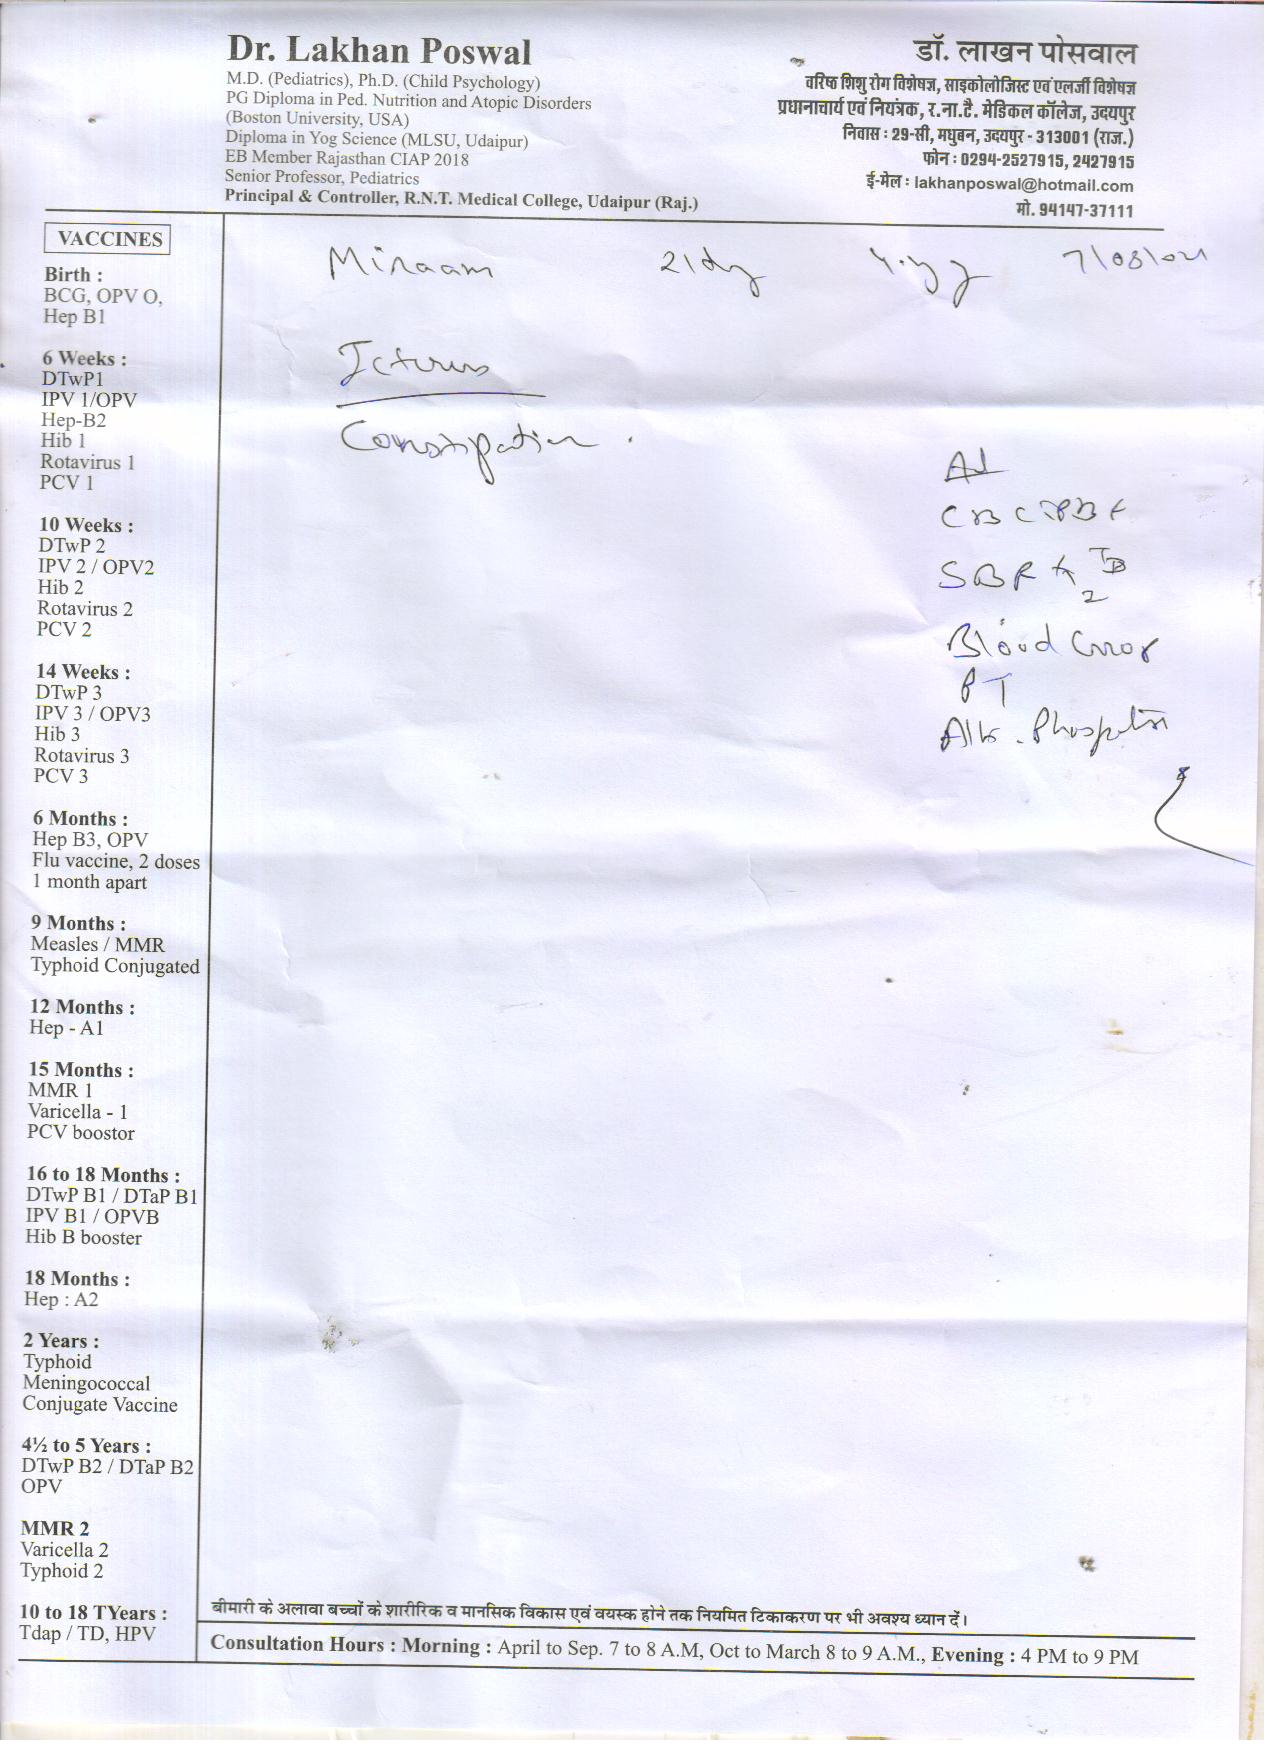 Dr. Lakhan Poswal
M.D. (Pediatrics), Ph.D. (Child Psychology)
PG Diploma in Ped. Nutrition and Atopic Disorders
(Boston University, USA)
Diploma in Yog Science (MLSU, Udaipur)
EB Member Rajasthan CIAP 2018
Senior Professor, Pediatrics
Principal & Controller, R.N.T. Medical College, Udaipur (Raj.)
डॉ. लाखन पोसवाल
वरिष्ठ शिशु रोग विशेषज्ञ, साइकोलोजिस्ट एवं एलर्जी विशेषज्ञ
प्रधानाचार्य एवं नियंत्रक, र.ना.टै. मेडिकल कॉलेज, उदयपुर
निवास : 29-सी, मधुबन, उदयपुर - 313001 (राज.)
फोन : 0294-2527915, 2427915
ई-मेल : lakhanposwal@hotmail.com
मो. 94147-37111
VACCINES
Birth :
BCG, OPV O,
Hep B1
6 Weeks :
DTwP1
IPV 1/OPV
Hep-B2
Hib 1
Rotavirus 1
PCV 1
10 Weeks :
DTwP 2
IPV 2 / OPV2
Hib 2
Rotavirus 2
PCV 2
14 Weeks :
DTwP 3
IPV 3 / OPV3
Hib 3
Rotavirus 3
PCV 3
6 Months :
Hep B3, OPV
Flu vaccine, 2 doses
1 month apart
9 Months :
Measles / MMR
Typhoid Conjugated
12 Months :
Hep - A1
15 Months :
MMR 1
Varicella - 1
PCV boostor
16 to 18 Months :
DTwP B1 / DTaP B1
IPV B1 / OPVB
Hib B booster
18 Months :
Hep : A2
2 Years :
Typhoid
Meningococcal
Conjugate Vaccine
4½ to 5 Years :
DTwP B2 / DTaP B2
OPV
MMR 2
Varicella 2
Typhoid 2
10 to 18 TYears :
Tdap / TD, HPV
Miraam 21dy
Icterus
Constipation .
Ad
CBC PBF
SBR
Blood
PT
Alk. Phospatase
बीमारी के अलावा बच्चों के शारीरिक व मानसिक विकास एवं वयस्क होने तक नियमित टिकाकरण पर भी अवश्य ध्यान दें।
Consultation Hours : Morning : April to Sep. 7 to 8 A.M, Oct to March 8 to 9 A.M., Evening : 4 PM to 9 PM